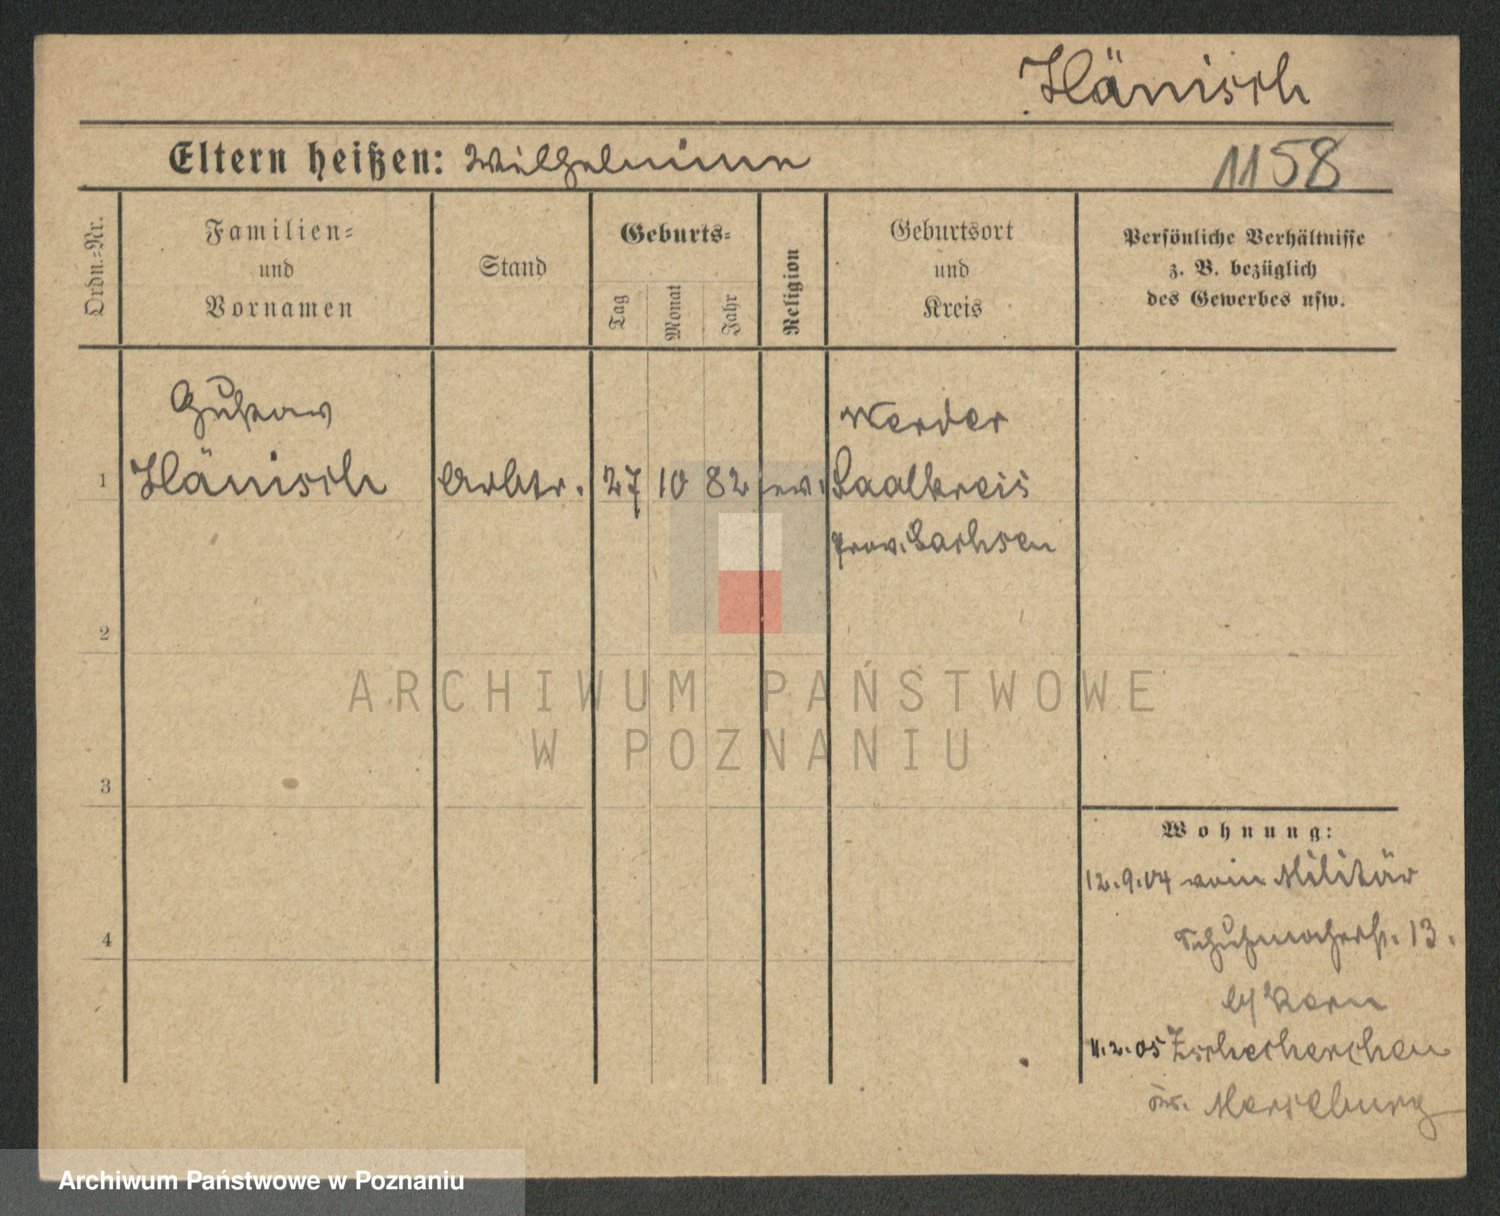 Hänisch
Eltern heißen: Wilhelmine
1158
Ordn.-Nr.
Familien-
und
Vornamen
Stand
Geburts-
Tag
Monat
Jahr
Religion
Geburtsort
und
Kreis
Persönliche Verhältnisse
z. B. bezüglich
des Gewerbes usw.
Gustav
Werder
1 Hänisch Arbtr. 27 10 82 ev. Saalkreis
Prov. Sachsen
2
ARCHIWUM PAŃSTWOWE
W POZNANIU
3
Wohnung:
12.9.04 vom Militär
4
Schuhmacherstr. 13.
b/ Korn
11.2.05 Zscherben
Merseburg
Archiwum Państwowe w Poznaniu